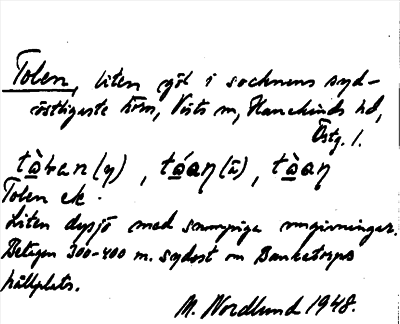 Tolen, liten göl i socknens syd-
östligaste hörn, Vists sn, Hanekinds hd,
Östg. l.
tàɷan (y) , táaɳ (ä) , tàaɳ
Tolen ek.
Liten dysjö med sumpiga omgivningar.
Belägen 300-400 m. sydost om Bankatorps
hållplats.
M. Nordlund 1948.